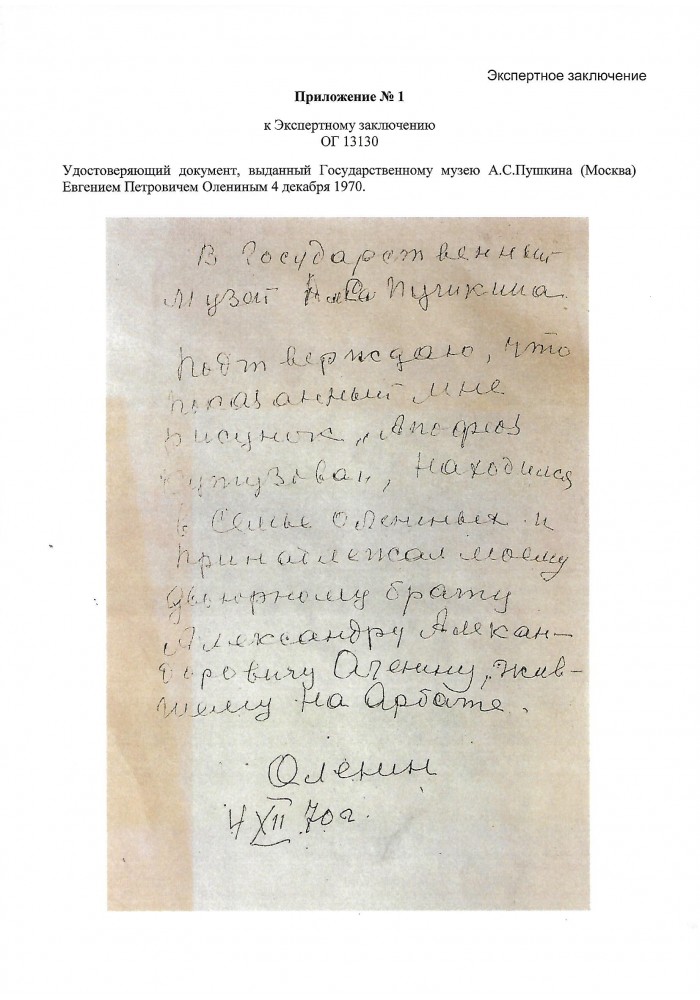 Экспертное заключение
Приложение № 1
к Экспертному заключению
ОГ 13130
Удостоверяющий документ, выданный Государственному музею А.С.Пушкина (Москва)
Евгением Петровичем Олениным 4 декабря 1970.
В Государственный
музей А. С. Пушкина
Подтверждаю, что
показанный мне
рисунок, „Апофеоз
Кутузова", находился
в семье Олениных и
принадлежал моему
двоюрному брату
Александру Алекан-
доровичу Оленину, жив-
шему на Арбате.
Оленин
4 XII 70 г.